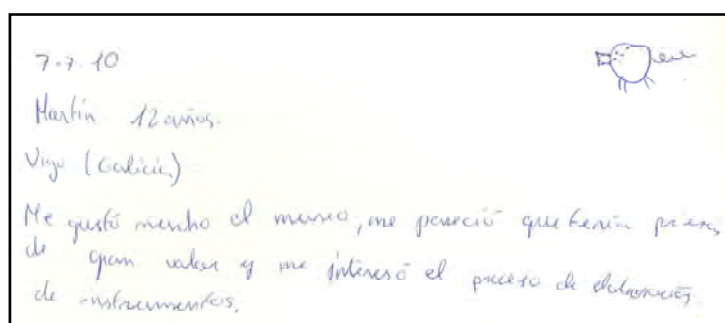 7.7.10
Martín 12 años.
Vigo (Galicia)
Me gustó mucho el museo, me pareció que tenía piezas
de gran valor y me interesó el proceso de elaboración
de instrumentos.